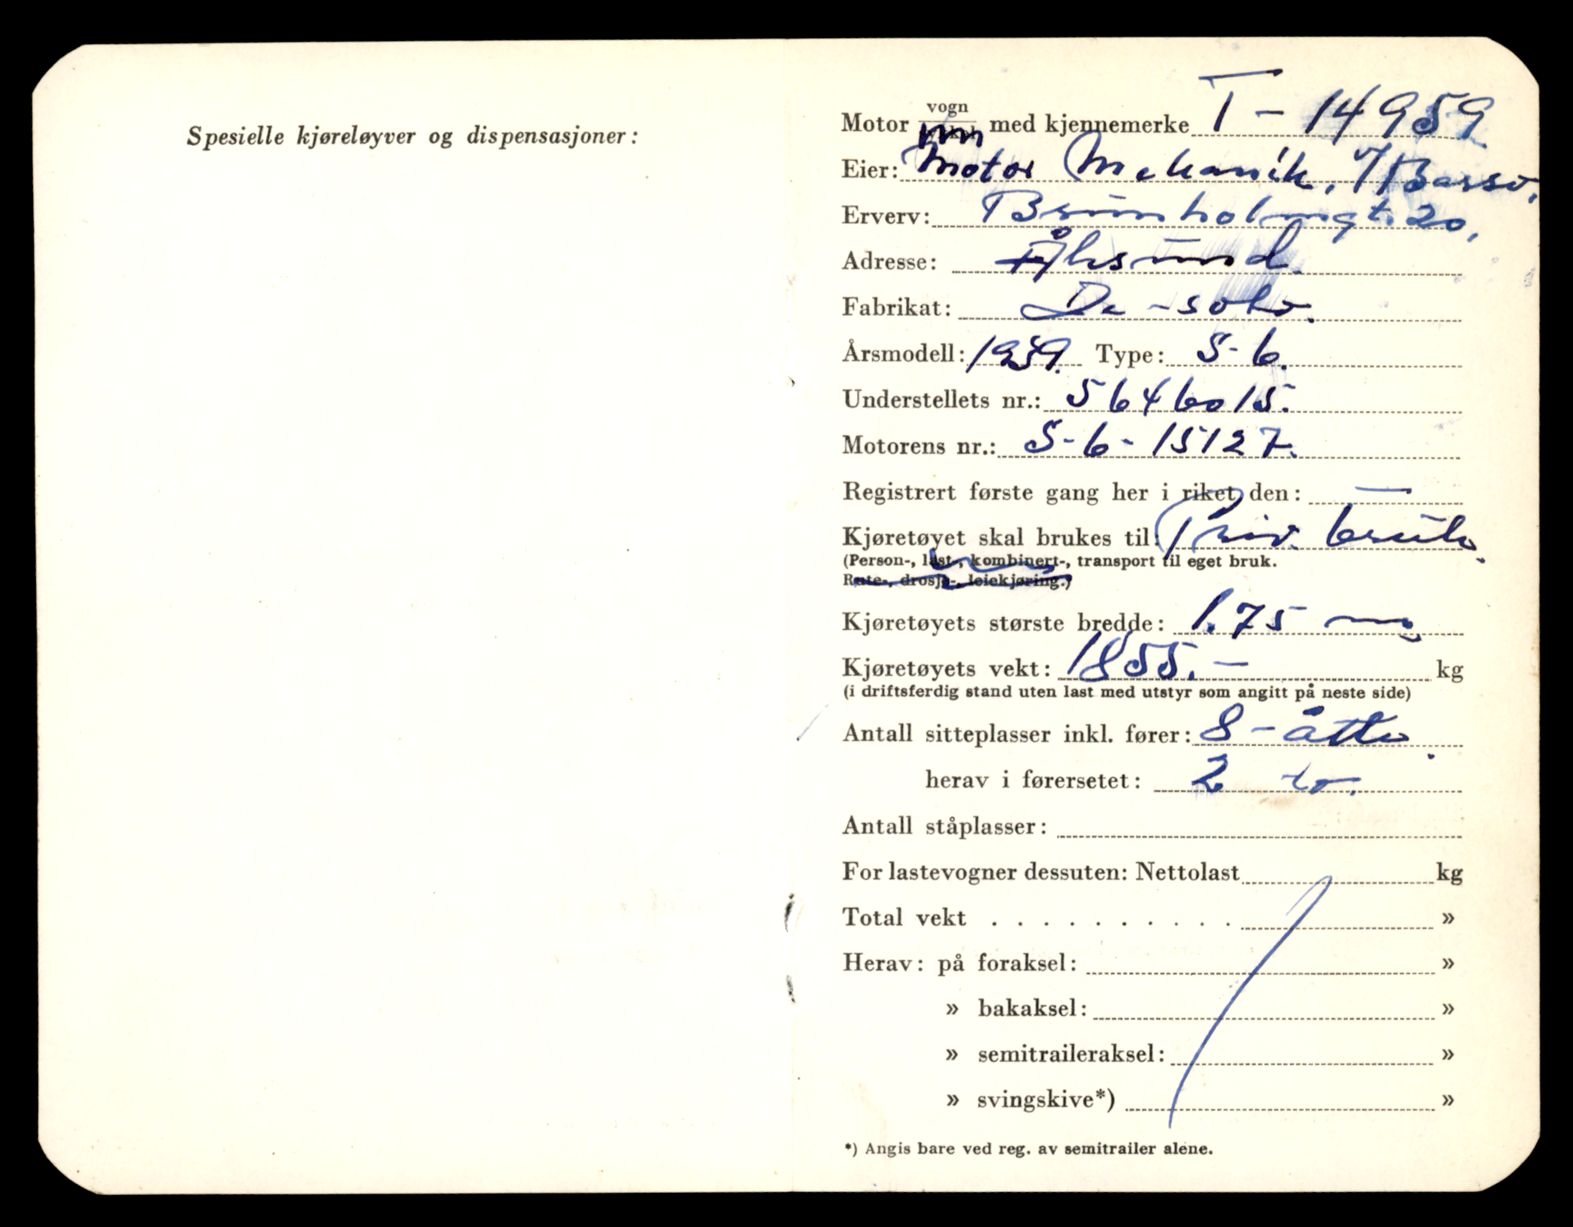 Spesielle kjøreløyver og dispensasjoner:
Motor vogn med kjennemerke T-14959
Eier: Motor Mekanik,
Erverv: Brunholmgt. 20,
Adresse: Ålesund.
Fabrikat: De-soto.
Årsmodell: 1939. Type: S-6.
Understellets nr.: 5646015.
Motorens nr.: S-6-15127.
Registrert første gang her i riket den: —
Kjøretøyet skal brukes til: Priv. bruk.
(Person-, last-, kombinert-, transport til eget bruk.
Rute-, drosje-, leiekjøring.)
Kjøretøyets største bredde: 1.75 m
Kjøretøyets vekt: 1855.- kg
(i driftsferdig stand uten last med utstyr som angitt på neste side)
Antall sitteplasser inkl. fører: 8-åtte.
herav i førersetet: 2 to.
Antall ståplasser:
For lastevogner dessuten: Nettolast kg
Total vekt . . . . . . . . . . »
Herav: på foraksel: »
» bakaksel: »
» semitraileraksel: »
» svingskive*) »
*) Angis bare ved reg. av semitrailer alene.